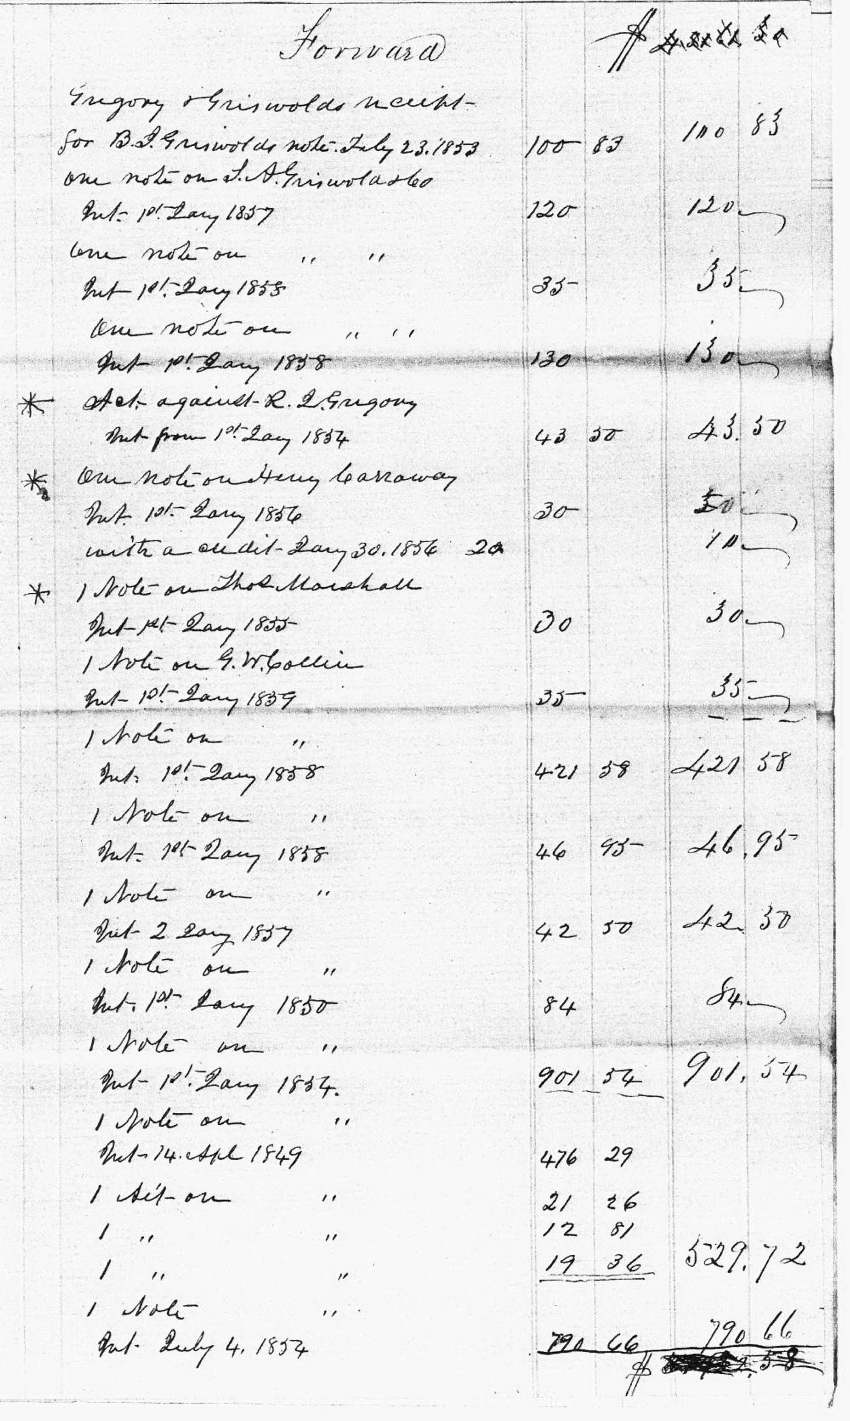 Forward $
Gregory & Griswolds receipt
for B.F. Griswolds note. July 23. 1853 100 83 100 83
one note on F. A. Griswold & Co
Int. 1st Jany 1857 120 120
One note on " "
Int 1st Jany 1858 35 35
One note on " "
Int 1st Jany 1858 130 130
* Act. against R. L. Gregory
Int from 1st Jany 1854 43 50 43.50
* One note on Henry Carraway
Int. 1st Jany 1856 30
with a credit Jany 30. 1856 20 10
* 1 Note on Thos Marshall
Int 1st Jany 1855 30 30
1 Note on G. W. Collin
Int 1st Jany 1859 35 35
1 Note on "
Int. 1st Jany 1858 421 58 421 58
1 Note on "
Int. 1st Jany 1858 46 95 46.95
1 Note on "
Int 2 Jany 1857 42 50 42.50
1 Note on "
Int. 1st Jany 1850 84 84
1 Note on "
Int 1st Jany 1854. 901 54 901.54
1 Note on "
Int 14. Apl 1849 476 29
1 Act on " 21 26
1 " " 12 81
1 " " 19 36 529.72
1 Note "
Int July 4. 1854 790 66 790 66
$